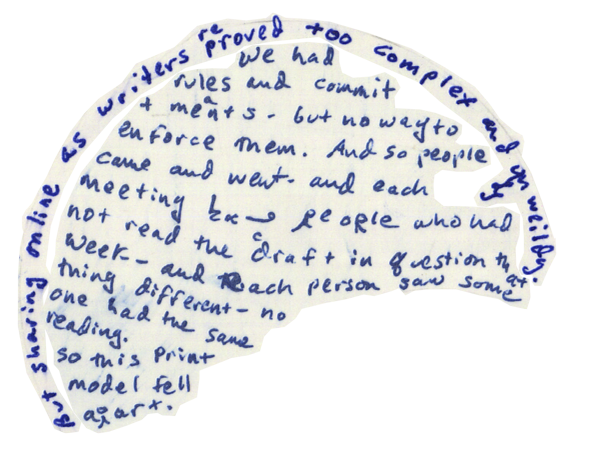 But sharing online as writers proved too complex and unweildy.
We had
rules and commit
ments - but no way to
enforce them. And so people
came and went - and each
meeting people who had
not read the draft in question that
week - and each person saw some
thing different - no
one had the same
reading.
so this print
model fell
apart.